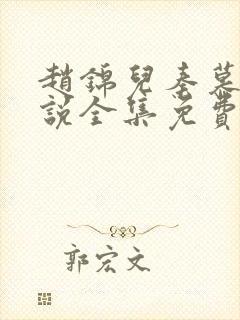 趙錦兒秦慕
說全集免費
郭宏文